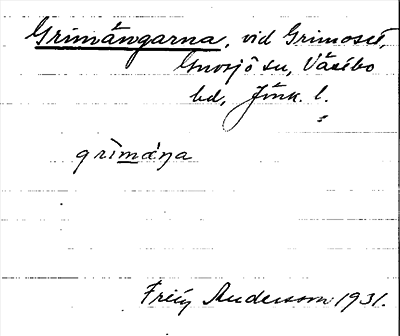 Grimångarna, vid Grimoset,
Gnosjö sn, Västbo
hd, Jönk. l.
grìmáŋa
Frejy Andersson 1931.